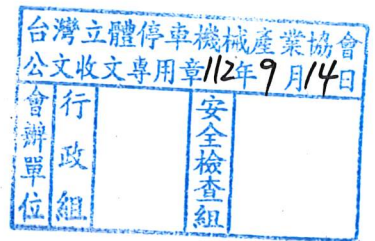 台灣立體停車機械產業協會
公文收文專用章112年9月14日
會辦單位
行政組
安全檢查組